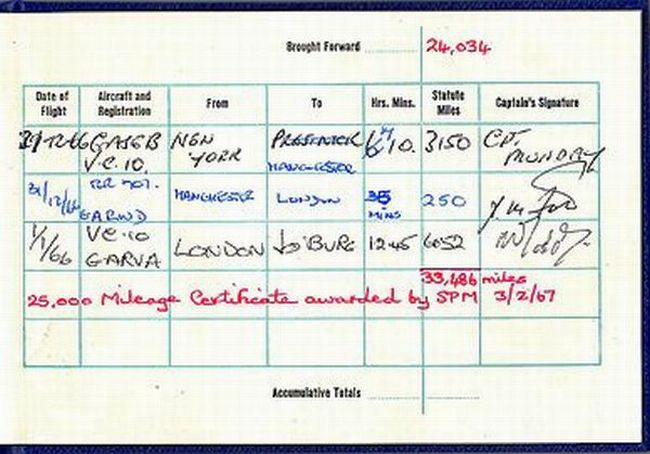 Brought Forward 24,034
Date of Flight Aircraft and Registration From To Hrs. Mins. Statute Miles Captain's Signature
GASGB VC.10. NEW YORK PRESTWICK MANCHESTER 10. 3150 CPT.
31/12/66 RR 707. GARWD MANCHESTER LONDON 35 MINS 250
1/1/66 VC.10 GARVA LONDON JO'BURG 12 45 6052
33,486 miles
25,000 Mileage Certificate awarded by SPM 3/2/67
Accumulative Totals